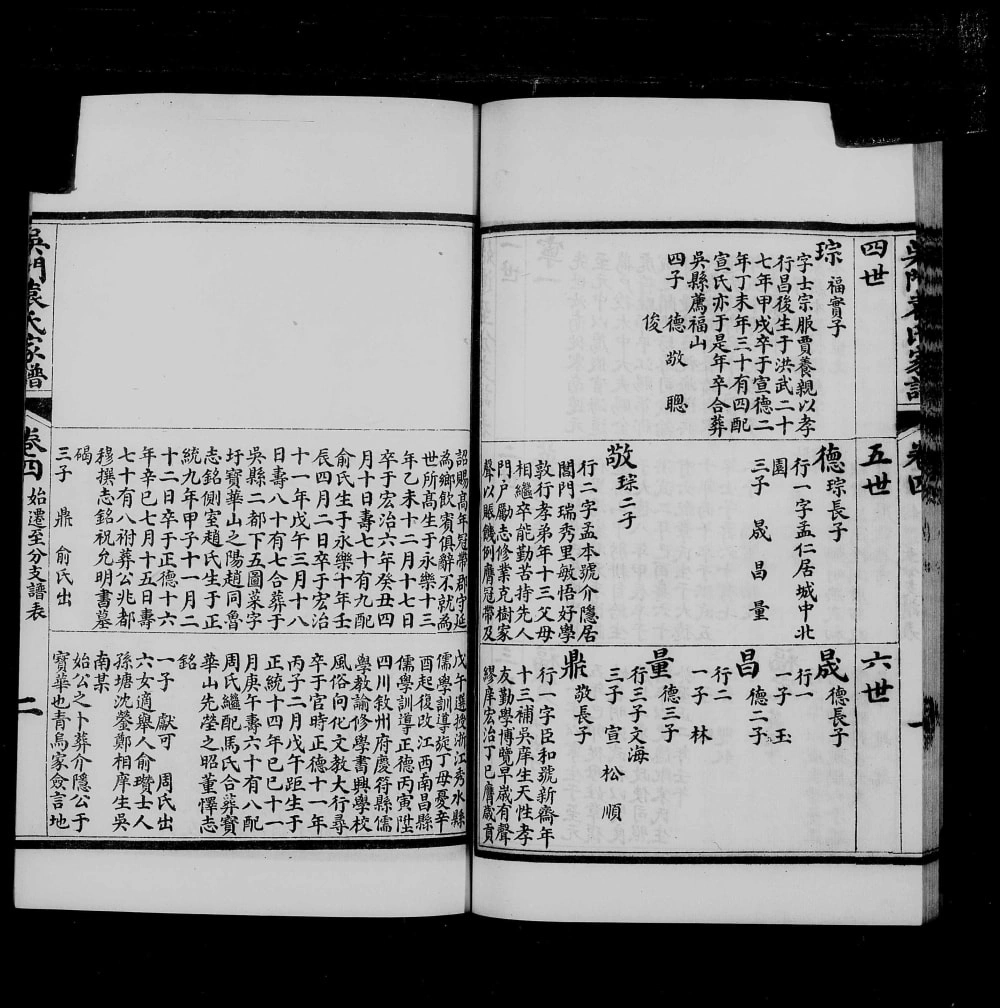 吳門袁氏家譜
卷四
一
四世
琮 福實子
字士宗服賈養親以孝
行昌後生于洪武二十
七年甲戌卒于宣德二
年丁未年三十有四配
宣氏亦于是年卒合葬
吳縣薦福山
四子 德 敬 聰
俊
五世
德 琮長子
行一字孟仁居城中北
園
三子 晟 昌 量
敬 琮二子
行二字孟本號介隱居
閶門瑞秀里敏悟好學
敦行孝弟年十三父母
相繼卒能勤苦持先人
門戶勵志修業克樹家
聲以賑饑例膺冠帶及
六世
晟 德長子
行一
一子 玉
昌 德二子
行二
一子 林
量 德三子
行三子文海
三子 宣 松 順
鼎 敬長子
行一字臣和號新齋年
十三補吳庠生天性孝
友勤學博覽早歲有聲
繆庠宏治丁巳膺歲貢
詔賜高年冠帶郡守延
為鄉飲賓俱辭不就為
世所高生于永樂十三
年乙未十二月十七日
卒于宏治六年癸丑四
月十日壽七十有九配
俞氏生于永樂十年壬
辰四月二日卒于宏治
十一年戊午三月十八
日壽八十有七合葬于
吳縣二都下五圖菜字
圩寶華山之陽趙同魯
志銘側室趙氏生于正
統九年甲子十一月二
十二日卒于正德十六
年辛巳七月十五日壽
七十有八祔葬公兆都
穆撰志銘祝允明書墓
碣
三子 鼎 俞氏出
戊午選授浙江秀水縣
儒學訓導旋丁母憂辛
酉起復改江西南昌縣
儒學訓導正德丙寅陞
四川敘州府慶符縣儒
學教諭修學書興學校
風俗向化文教大行尋
卒于官時正德十一年
丙子二月戊午距生于
正統十四年己巳十一
月庚午壽六十有八配
周氏繼配馬氏合葬寶
華山先塋之昭董懌志
銘
一子 獻可 周氏出
六女適舉人俞瓚士人
孫塘沈鎣鄭相庠生吳
南某
始公之卜葬介隱公于
寶華也青烏家僉言地
吳門袁氏家譜
卷四 始遷至分支譜表
二